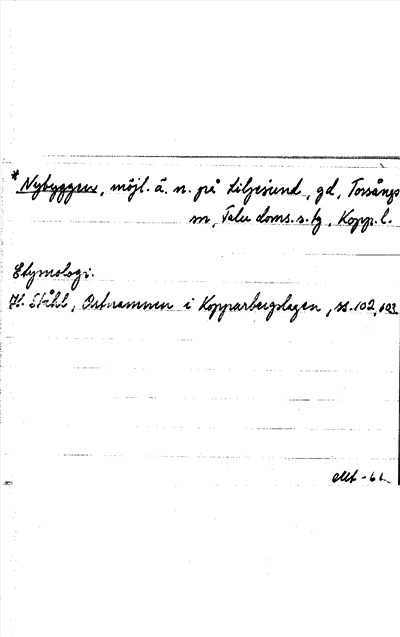 *Nybyggen, möjl. ä. n. på Liljesund, gd, Torsångs
sn, Falu doms. s. tg, Kopp. l.
Etymologi.
H. Ståhl, Ortnamnen i Kopparbergslagen, ss. 102, 103.